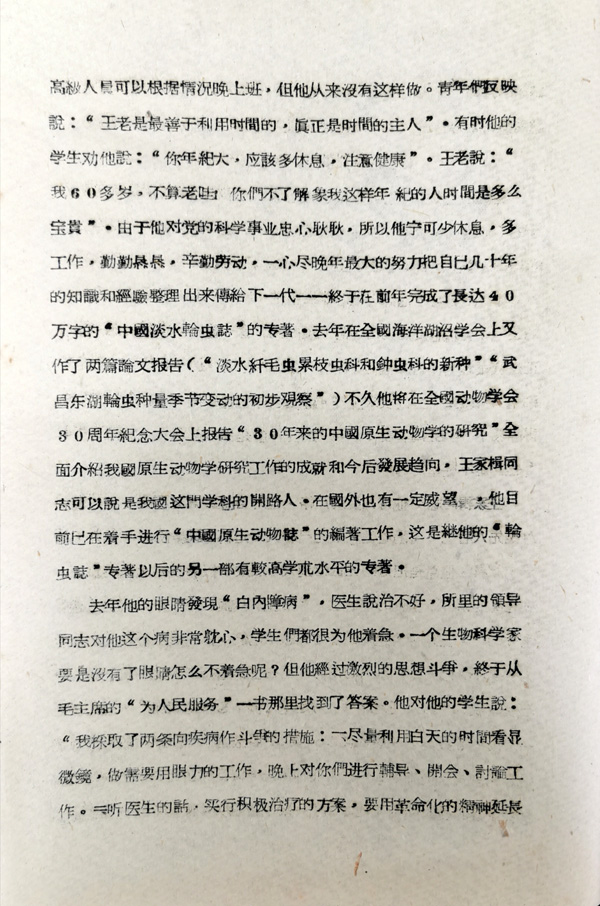 高級人員可以根据情况晚上班，但他从来沒有这样做。青年們反映
說：“王老是最善于利用時間的，眞正是时間的主人”。有时他的
学生劝他說：“你年紀大，应該多休息，注意健康”。王老說：“
我60多岁，不算老哇！你們不了解象我这样年紀的人时間是多么
宝貴”。由于他对党的科学事业忠心耿耿，所以他宁可少休息，多
工作，勤勤恳恳，辛勤劳动，一心尽晚年最大的努力把自己几十年
的知識和經驗整理出来傳給下一代——終于在前年完成了長达40
万字的“中國淡水輪虫誌”的专著。去年在全國海洋湖沼学会上又
作了两篇論文报告（“淡水纤毛虫累枝虫科和鈡虫科的新种”“武
昌东湖輪虫种量季节变动的初步观察”）不久他将在全國动物学会
30周年紀念大会上报告“30年来的中國原生动物学的研究”全
面介紹我國原生动物学研究工作的成就和今后發展趋向，王家楫同
志可以說是我國这門学科的開路人。在國外也有一定威望。他目
前已在着手进行“中國原生动物誌”的編著工作，这是継他的“輪
虫誌”专著以后的另一部有較高学朮水平的专著。
去年他的眼睛發現“白內障病”，医生說治不好，所里的領导
同志对他这个病非常躭心，学生們都很为他着急。一个生物科学家
要是沒有了眼睛怎么不着急呢？但他經过激烈的思想斗爭，終于从
毛主席的“为人民服务”一书那里找到了答案。他对他的学生說：
“我採取了两条向疾病作斗爭的措施：一尽量利用白天的时間看显
微鏡，做需要用眼力的工作，晚上对你們进行輔导、開会、討論工
作。二听医生的話，实行积极治疗的方案，要用革命化的精神延長